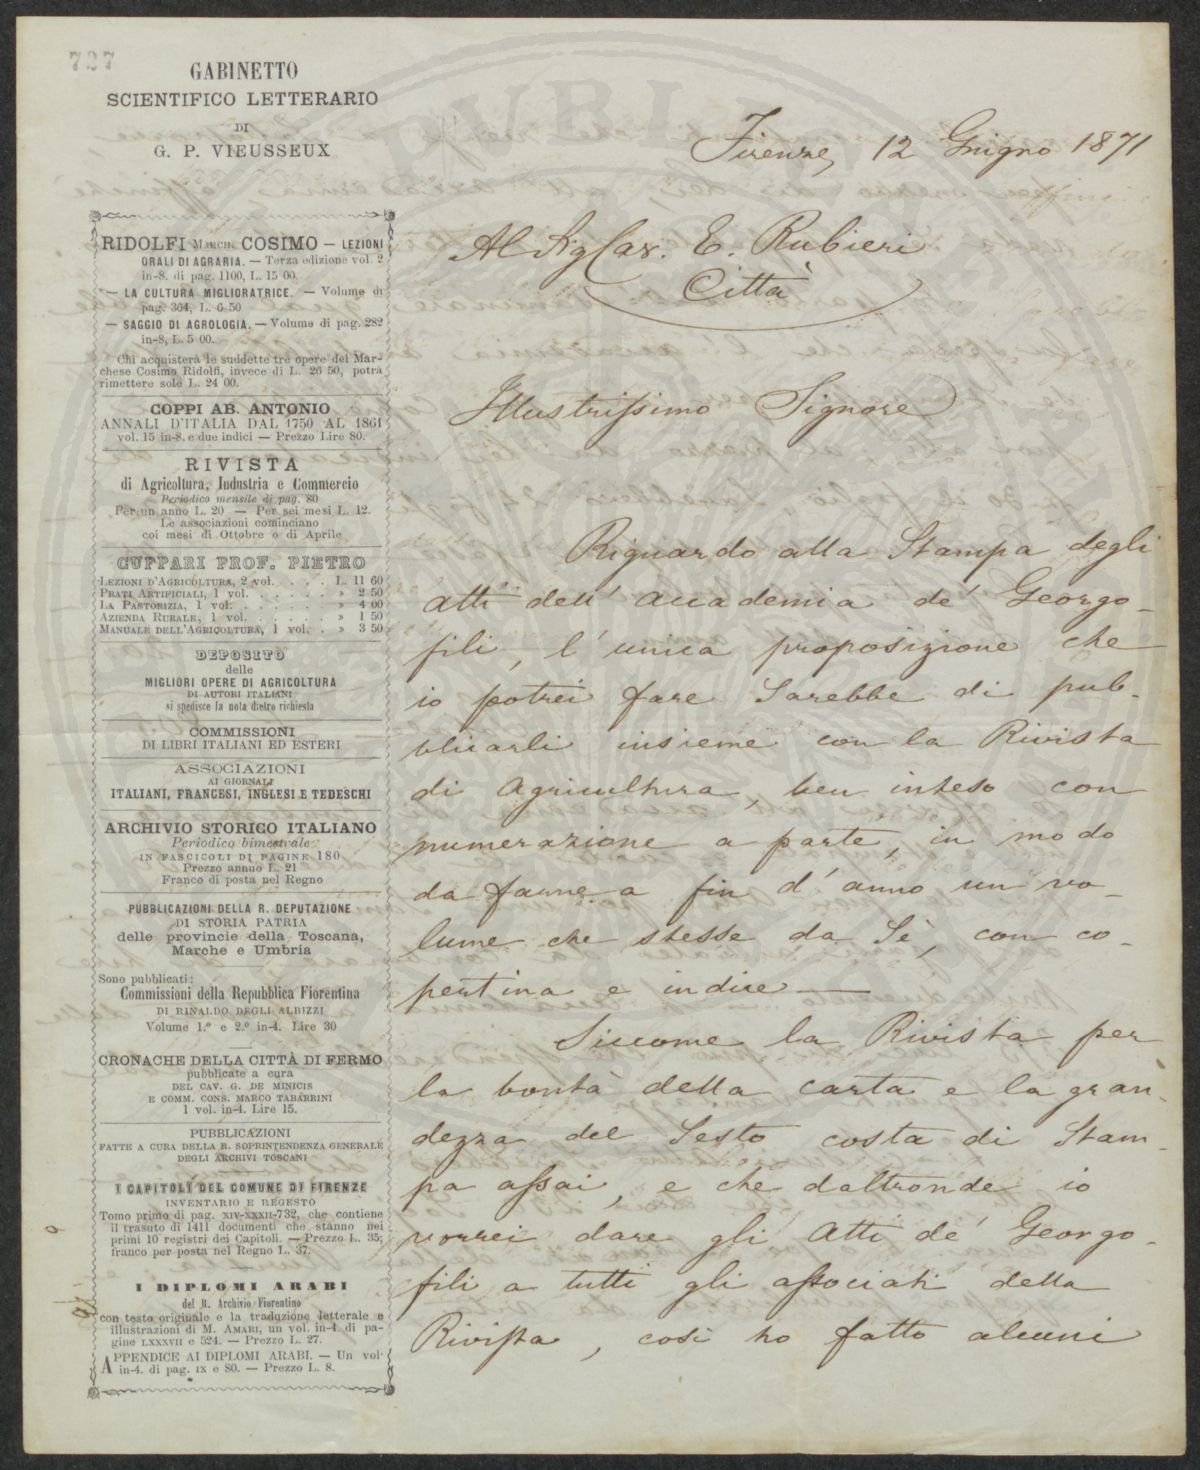 727
GABINETTO
SCIENTIFICO LETTERARIO
DI
G. P. VIEUSSEUX
RIDOLFI March. COSIMO — LEZIONI
ORALI DI AGRARIA. — Terza edizione vol. 2
in-8. di pag. 1100, L. 15 00.
— LA CULTURA MIGLIORATRICE. — Volume di
pag. 364, L. 6 50
— SAGGIO DI AGROLOGIA. — Volume di pag. 282
in-8, L. 5 00.
Chi acquisterà le suddette tre opere del Mar-
chese Cosimo Ridolfi, invece di L. 26 50, potrà
rimettere sole L. 24 00.
COPPI AB. ANTONIO
ANNALI D'ITALIA DAL 1750 AL 1861
vol. 15 in-8. e due indici — Prezzo Lire 80.
RIVISTA
di Agricoltura, Industria e Commercio
Periodico mensile di pag. 80
Per un anno L. 20 — Per sei mesi L. 12.
Le associazioni cominciano
coi mesi di Ottobre o di Aprile
CUPPARI PROF. PIETRO
LEZIONI D'AGRICOLTURA, 2 vol. . . . L. 11 60
PRATI ARTIFICIALI, 1 vol. . . . . . » 2 50
LA PASTORIZIA, 1 vol. . . . . . . » 4 00
AZIENDA RURALE, 1 vol. . . . . . » 1 50
MANUALE DELL'AGRICOLTURA, 1 vol. . » 3 50
DEPOSITO
delle
MIGLIORI OPERE DI AGRICOLTURA
DI AUTORI ITALIANI
si spedisce la nota dietro richiesta
COMMISSIONI
DI LIBRI ITALIANI ED ESTERI
ASSOCIAZIONI
AI GIORNALI
ITALIANI, FRANCESI, INGLESI E TEDESCHI
ARCHIVIO STORICO ITALIANO
Periodico bimestrale
IN FASCICOLI DI PAGINE 180
Prezzo annuo L. 21
Franco di posta nel Regno
PUBBLICAZIONI DELLA R. DEPUTAZIONE
DI STORIA PATRIA
delle provincie della Toscana,
Marche e Umbria
Sono pubblicati:
Commissioni della Repubblica Fiorentina
DI RINALDO DEGLI ALBIZZI
Volume 1.º e 2.º in-4. Lire 30
CRONACHE DELLA CITTÀ DI FERMO
pubblicate a cura
DEL CAV. G. DE MINICIS
E COMM. CONS. MARCO TABARRINI
1 vol. in-4. Lire 15.
PUBBLICAZIONI
FATTE A CURA DELLA R. SOPRINTENDENZA GENERALE
DEGLI ARCHIVI TOSCANI
I CAPITOLI DEL COMUNE DI FIRENZE
INVENTARIO E REGESTO
Tomo primo di pag. XIV-XXXII-732, che contiene
il trasuto di 1411 documenti che stanno nei
primi 10 registri dei Capitoli. — Prezzo L. 35;
franco per posta nel Regno L. 37.
I DIPLOMI ARABI
del R. Archivio Fiorentino
con testo originale e la traduzione letterale e
illustrazioni di M. AMARI, un vol. in-4. di pa-
gine LXXXVII e 524. — Prezzo L. 27.
APPENDICE AI DIPLOMI ARABI. — Un vol.
in-4. di pag. IX e 80. — Prezzo L. 8.
Firenze, 12 Giugno 1871
Al Sig Cav. E. Rubieri
Città
Illustrissimo Signore
Riguardo alla Stampa degli
Atti dell' Accademia de' Georgo-
fili, l'unica proposizione che
io potrei fare sarebbe di pub-
blicarli insieme con la Rivista
di Agricultura, ben inteso con
numerazione a parte, in modo
da farne a fin d'anno un vo-
lume che stesse da Sè, con co-
pertina e indice —
Siccome la Rivista per
la bontà della carta e la gran-
dezza del Sesto costa di Stam-
pa assai, e che daltronde io
vorrei dare gli Atti de' Georgo-
fili a tutti gli associati della
Rivista, così ho fatto alcuni